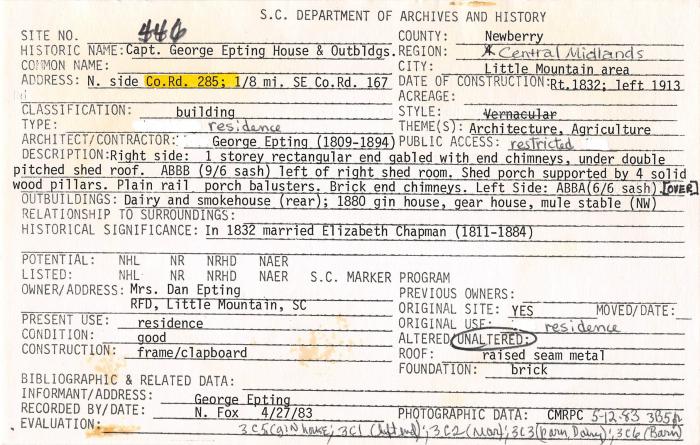 S.C. DEPARTMENT OF ARCHIVES AND HISTORY
SITE NO. 446 COUNTY: Newberry
HISTORIC NAME: Capt. George Epting House & Outbldgs. REGION: Central Midlands
COMMON NAME: CITY: Little Mountain area
ADDRESS: N. side Co.Rd. 285; 1/8 mi. SE Co.Rd. 167 DATE OF CONSTRUCTION: Rt.1832; left 1913
ACREAGE:
CLASSIFICATION: building STYLE: Vernacular
TYPE: residence THEME(S): Architecture, Agriculture
ARCHITECT/CONTRACTOR: George Epting (1809-1894) PUBLIC ACCESS: restricted
DESCRIPTION: Right side: 1 storey rectangular end gabled with end chimneys, under double
pitched shed roof. ABBB (9/6 sash) left of right shed room. Shed porch supported by 4 solid
wood pillars. Plain rail porch balusters. Brick end chimneys. Left Side: ABBA(6/6 sash) [OVER]
OUTBUILDINGS: Dairy and smokehouse (rear); 1880 gin house, gear house, mule stable (NW)
RELATIONSHIP TO SURROUNDINGS:
HISTORICAL SIGNIFICANCE: In 1832 married Elizabeth Chapman (1811-1884)
POTENTIAL: NHL NR NRHD NAER
LISTED: NHL NR NRHD NAER S.C. MARKER PROGRAM
OWNER/ADDRESS: Mrs. Dan Epting PREVIOUS OWNERS:
RFD, Little Mountain, SC ORIGINAL SITE: YES MOVED/DATE:
PRESENT USE: residence ORIGINAL USE: residence
CONDITION: good ALTERED/UNALTERED:
CONSTRUCTION: frame/clapboard ROOF: raised seam metal
FOUNDATION: brick
BIBLIOGRAPHIC & RELATED DATA:
INFORMANT/ADDRESS: George Epting
RECORDED BY/DATE: N. Fox 4/27/83 PHOTOGRAPHIC DATA: CMRPC 5-12-83 3B5A
EVALUATION: 3C5(gin house; 3C1 (left end); 3C2 (Near); 3C3 (Barn, Dairy); 3C6 (Barn)